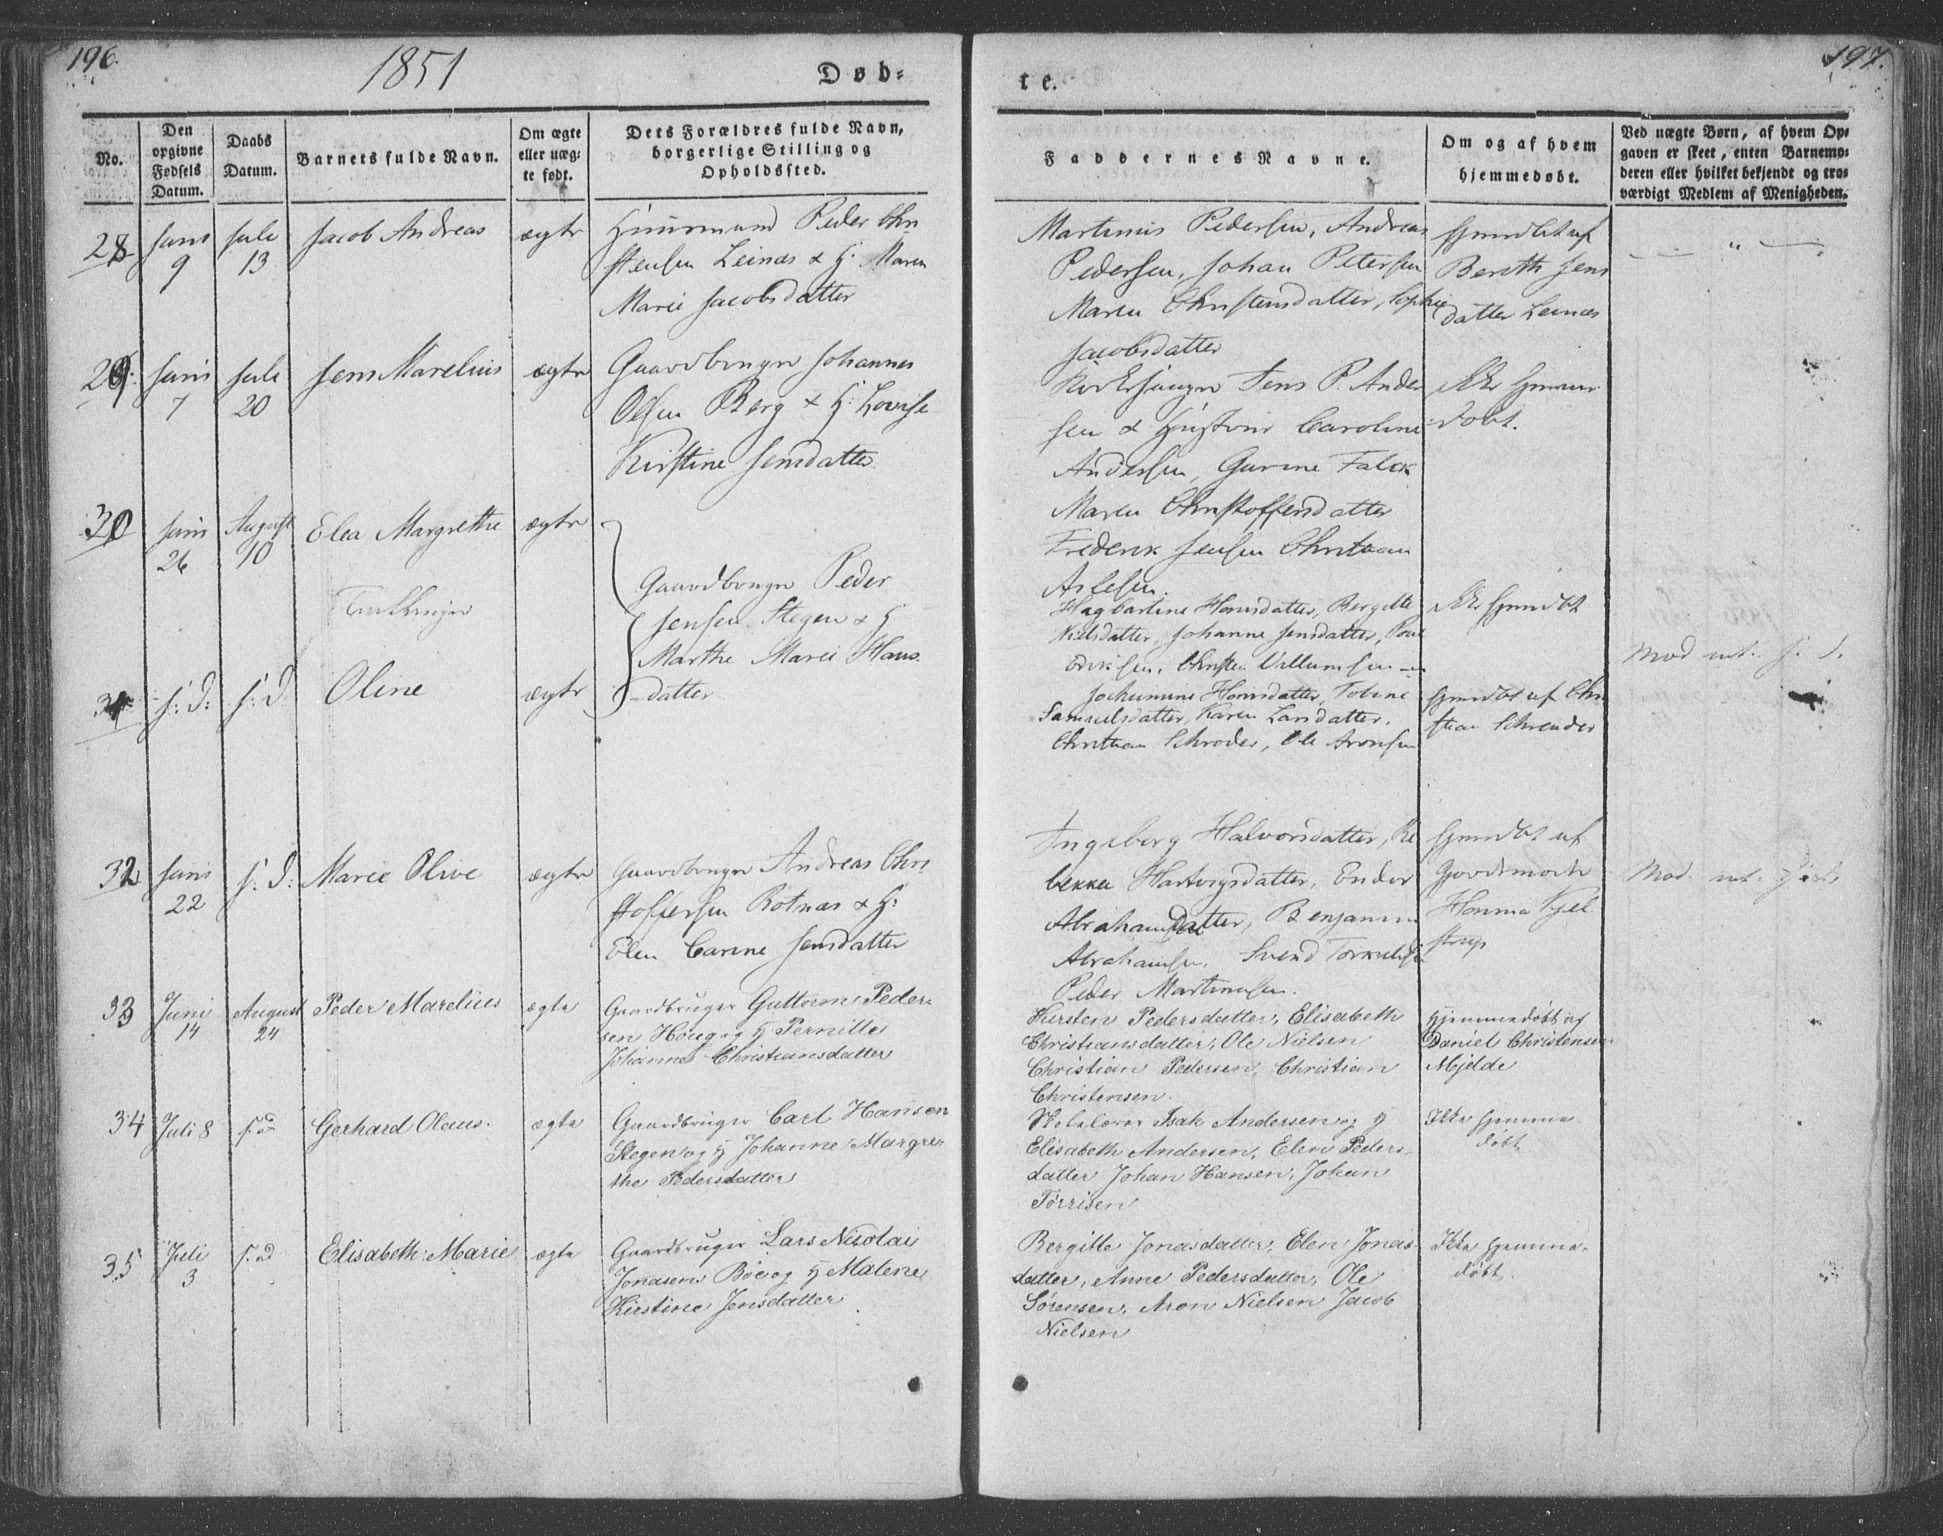 196.
1851
Døb-
No.
Den
opgivne
Fødsels
Datum.
Daabs
Datum.
Barnets fulde Navn.
Om ægte
eller uæg-
te født.
Dets Forældres fulde Navn,
borgerlige Stilling og
Opholdssted.
28
Juni
9
Juli
13
Jacob Andreas
ægte
Huusmand Peder Chri
stensen Leinæs & H: Maren
Marie Jacobsdatter
29
Juni
7
Juli
20
Jens Marelius
ægte
Gaardbruger Johannes
Olsen Berg & H: Lovise
Kirstine Jensdatter
30
Juni
26
August
10
Elea Margrethe
ægte
Tvillinger
Gaardbruger Peder
Jensen Stegen & H
Marthe Marie Hans
datter
31
s: d:
s: d:
Oline
ægte
32
Juni
22
s: d:
Marie Olive
ægte
Gaardbruger Andreas Chri
stoffersen Rotnæs & H:
Elen Carine Jensdatter
33
Juni
14
August
24
Peder Marelius
ægte
Gaardbruger Guttorm Peder-
sen Houg og H Pernille
Johanne Christiansdatter
34
Juli 8
s. d
Gerhard Olaus.
ægte
Gaardbruger Carl Hansen
Stegen og H Johanne Margre-
the Pedersdatter
35
Juli
3
s. d
Elisabeth Marie
ægte
Gaardbruger Lars Nicolai
Jonasen Bøe og H Malene
Kirstine Jensdatter
te.
197.
Faddernes Navne.
Om og af hvem
hjemmedøbt.
Ved uægte Børn, af hvem Op-
gaven er skeet, enten Barnemo-
deren eller hvilket bekjendt og tro-
værdigt Medlem af Menigheden.
Martinus Pedersen, Andreas
Pedersen, Johan Petersen
Maren Christensdatter, Sophie
Jacobsdatter
Hjemdøbt af
Bereth Jens
datter Leinæs
Kirkesanger Jens P. Ander
sen & Hustrue Caroline
Andersen, Gurine Falck
Maren Christoffersdatter
Frederik Jensen Christian
Aslesen.
Ikke hjemme
døbt.
Hagbartine Hansdatter, Bergitte
Nielsdatter, Johanne Jensdatter, Poul
Eriksen, Christen Villumsen
Ikke hjemdøbt
Jochumine Hansdatter, Tobine
Samuelsdatter, Karen Larsdatter.
Christian Schrøder, Ole Aronsen
Hjemdøbt af Chri
stian Schrøder
Ingeborg Halvorsdatter, Re
bekka Hartvigsdatter, Ender
Abrahamsdatter, Benjamin
Abrahamsen, Svend Torkelsen
Peder Martinusen.
Hjemdøbt af
Hanna Kjel
strup
Kirsten Pedersdatter, Elisabeth
Christiansdatter, Ole Nielsen
Christian Pedersen, Christian
Christensen.
Hjemmedøbt af
Daniel Christensen
Mjelde
Skolelærer Isak Andersen og H
Elisabeth Andersen, Elen Peders-
datter Johan Hansen, Johan
Torrisen
Ikke hjemme-
døbt
Bergitte Jonasdatter, Elen Jonas-
datter, Anne Pedersdatter, Ole
Sørensen, Aron Nielsen Jacob
Nielsen
Ikke hjemme-
døbt.